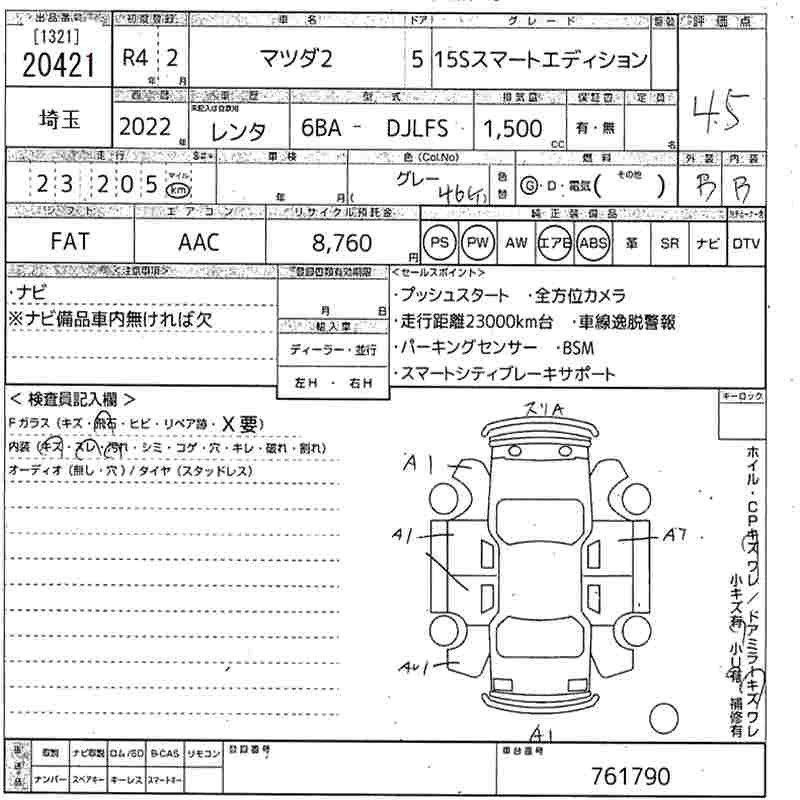 出品番号 初度登録 車名 ドア グレード 評価点
[1321]
20421 R4 年 2 月 マツダ2 5 15Sスマートエディション
4.5
車歴 型式 排気量 保証書 定員
埼玉 2022 年 未記入は自家用 レンタ 6BA - DJLFS 1,500 CC 有・無 名
走行 車検 色(Col.No) 燃料 外装 内装
23,205 マイル km 年 月 グレー 色替 Ⓖ・D・電気( その他 ) B B
46G
シフト エアコン リサイクル預託金 純正装備品
FAT AAC 8,760 円 PS PW AW エアB ABS 革 SR ナビ DTV
注意事項 登録書類有効期限 <セールスポイント>
・ナビ 月 日 ・プッシュスタート ・全方位カメラ
※ナビ備品車内無ければ欠 輸入車 ・走行距離23000km台 ・車線逸脱警報
ディーラー・並行 ・パーキングセンサー ・BSM
左H ・ 右H ・スマートシティブレーキサポート
< 検査員記入欄 > キーロック
Fガラス (キズ・飛石・ヒビ・リペア跡・X要)
内装 (キズ・スレ・汚れ・シミ・コゲ・穴・キレ・破れ・割れ)
オーディオ (無し・穴) / タイヤ (スタッドレス)
スリA
A1
A1 A7
AU1
A1
ホイル・CPキズワレ/ドアミラーキズワレ
小キズ有 小U有 補修有
取説 ナビ取説 ロム/SD B-CAS リモコン 登録番号 車台番号
ナンバー スペアキー キーレス スマートキー 761790